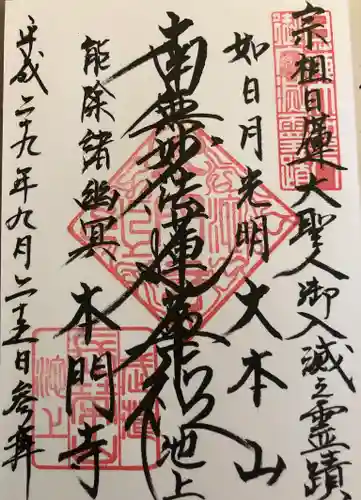 宗祖日蓮大聖人御入滅之霊蹟
如日月光明 大本山
南無妙法蓮華経 池上
能除諸幽冥 本門寺
平成二十九年九月二十五日参拝